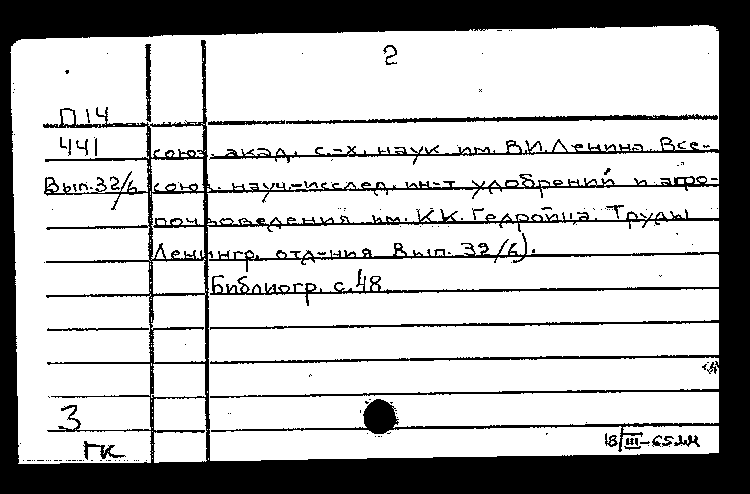 2
П14
441 союз. акад. с.-х. наук им. В.И.Ленина. Все-
Вып.32/6 союз. науч.-исслед. ин-т удобрений и агро-
почвоведения им. К.К. Гедройца. Труды
Ленингр. отд-ния Вып. 32/6).
Библиогр. с.48
3
ГК
18/III-65